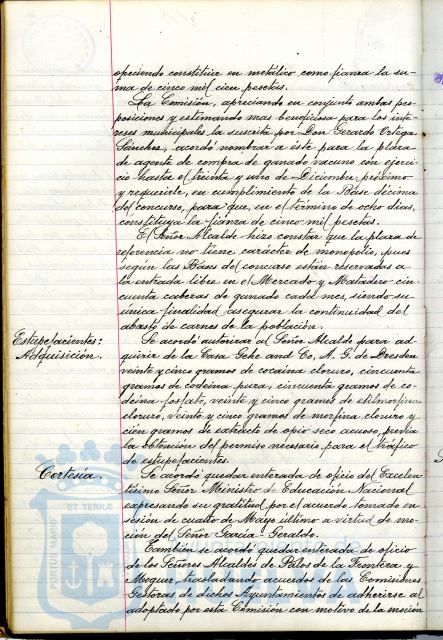 ofreciendo constituir en metálico como fianza la su-
ma de cinco mil cien pesetas.
La Comisión, apreciando en conjunto ambas pro-
posiciones y estimando mas beneficiosa para los inte
reses municipales la suscrita por Don Gerardo Ortega
Sánchez, acordó nombrar a éste para la plaza
de agente de compra de ganado vacuno con ejerci-
cio hasta el treinta y uno de Diciembre próximo
y requerirle, en cumplimiento de la Base décima
del concurso, para que, en el término de ocho días,
constituya la fianza de cinco mil pesetas.
El Señor Alcalde hizo constar que la plaza de
referencia no tiene carácter de monopolio, pues
según las Bases del concurso están reservadas a
la entrada libre en el Mercado y Matadero cin-
cuenta cabezas de ganado cada mes, siendo su
única finalidad asegurar la continuidad del
abasto de carnes de la población.
Estupefacientes:
Adquisición.
Se acordó autorizar al Señor Alcalde para ad-
quirir de la Casa Gehe and Co, A. G. de Dresden
veinte y cinco gramos de cocaína cloruro, cincuenta
gramos de codeina pura, cincuenta gramos de co-
deina fosfato, veinte y cinco gramos de etilmorfina
cloruro, veinte y cinco gramos de morfina cloruro y
cien gramos de extracto de opio seco acuoso, previa
la obtención del permiso necesario para el tráfico
de estupefacientes.
Cortesía.
Se acordó quedar enterada de oficio del Excelen-
tísimo Señor Ministro de Educación Nacional
expresando su gratitud por el acuerdo tomado en
sesión de cuatro de Mayo último a virtud de mo-
ción del Señor Garcia-Geraldo.
También se acordó quedar enterada de oficio
de los Señores Alcaldes de Palos de la Frontera y
Moguer, trasladando acuerdos de las Comisiones
Gestoras de dichos Ayuntamientos de adherirse al
adoptado por esta Comisión con motivo de la moción
PORTUS MARIS ET TERRÆ